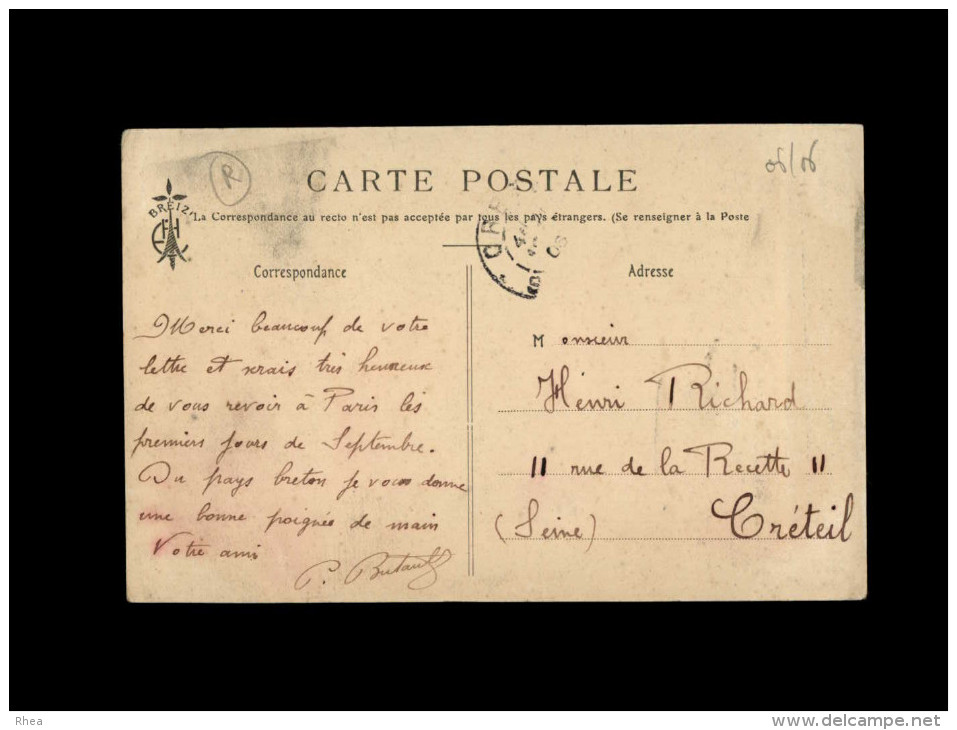 R
06/06
CARTE POSTALE
BREIZ
La Correspondance au recto n'est pas acceptée par tous les pays étrangers. (Se renseigner à la Poste
Correspondance
Merci beaucoup de votre
lettre et serais très heureux
de vous revoir à Paris les
premiers jours de Septembre.
Du pays breton je vous donne
une bonne poignée de main
Votre ami
P.
Adresse
Monsieur
Hénri Richard
11 rue de la Recette 11
(Seine) Créteil
Rhea
www.delcampe.net